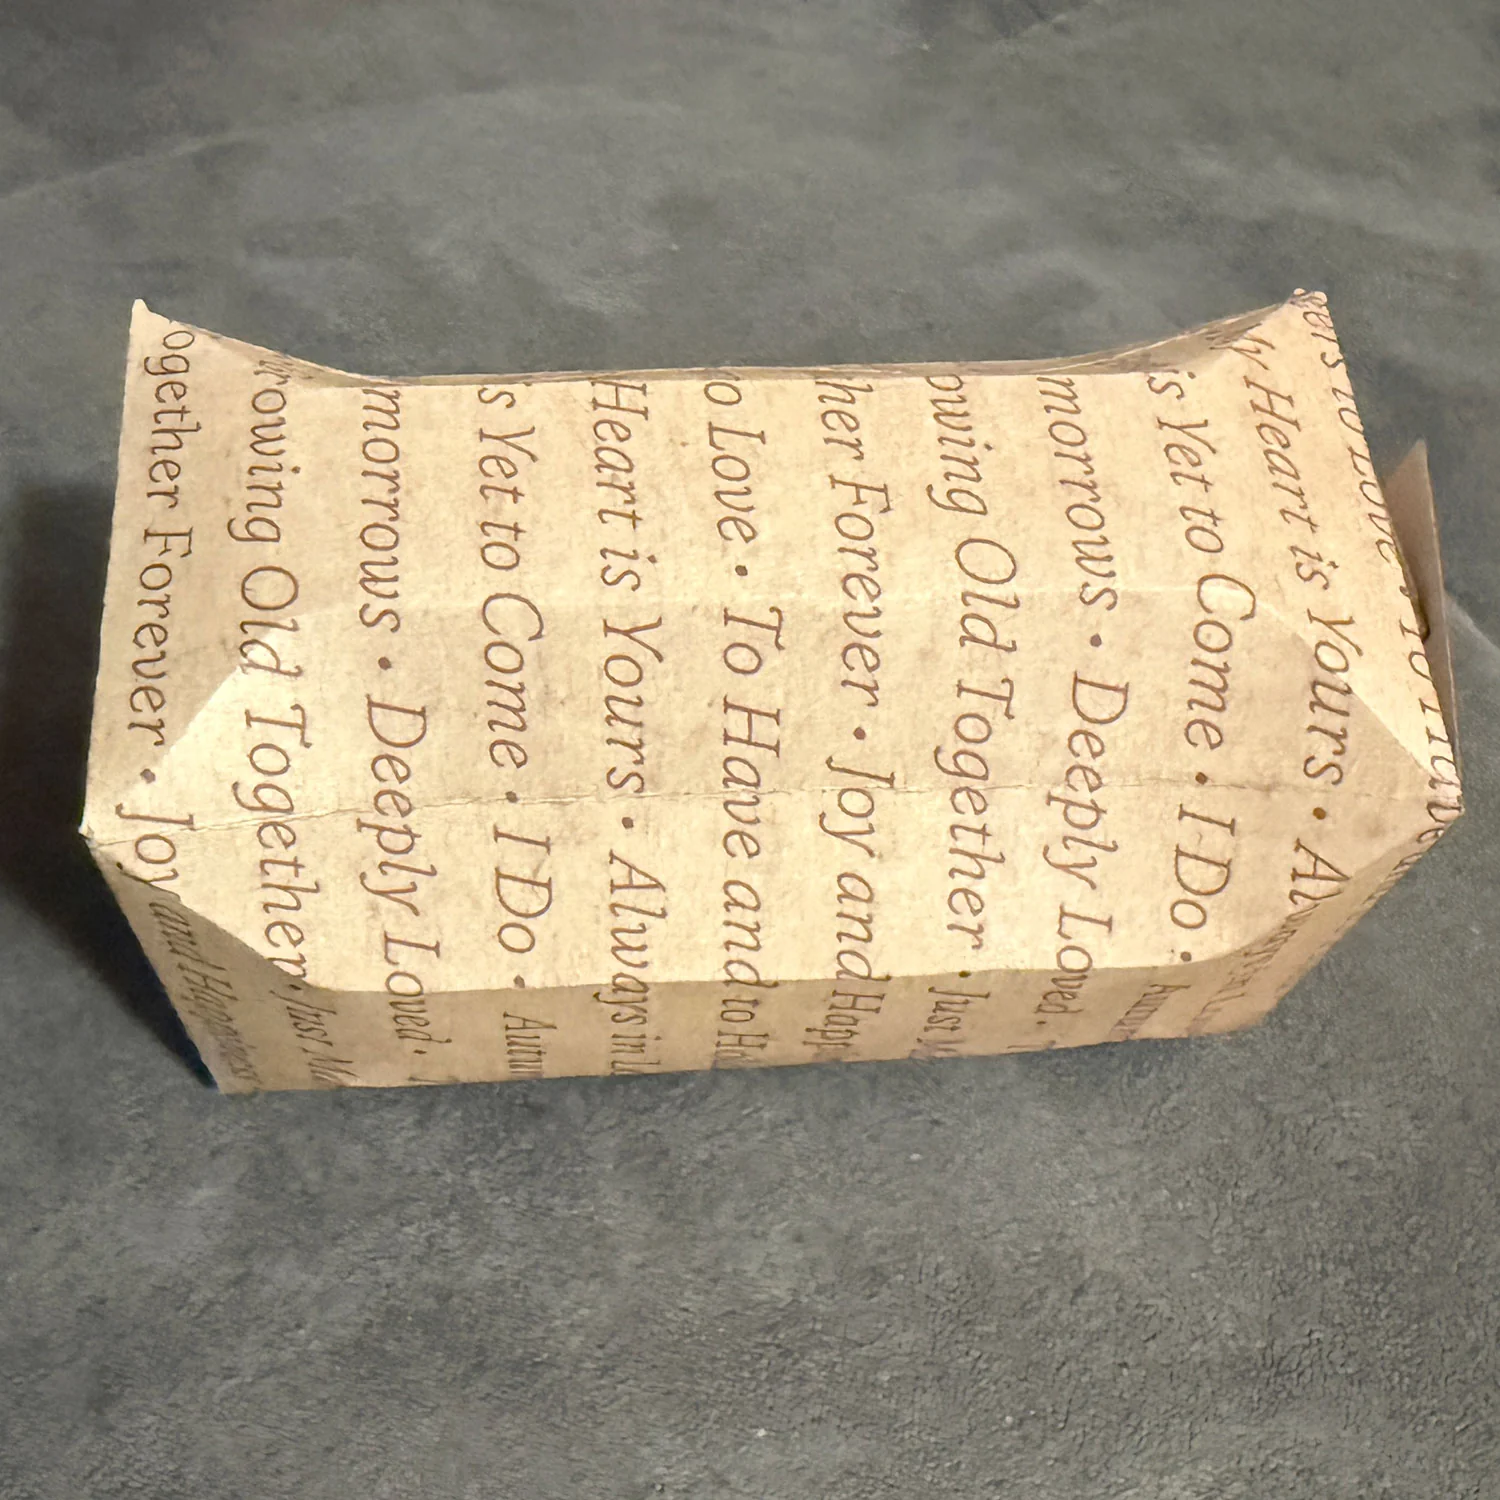 ogether Forever • Joy and Happiness
rowing Old Together • Just
morrows • Deeply Loved •
is Yet to Come • I Do •
Heart is Yours • Always in
o Love • To Have and to
her Forever • Joy and
owing Old Together • Just
morrows • Deeply Loved •
is Yet to Come • I Do •
y Heart is Yours •
to Love •